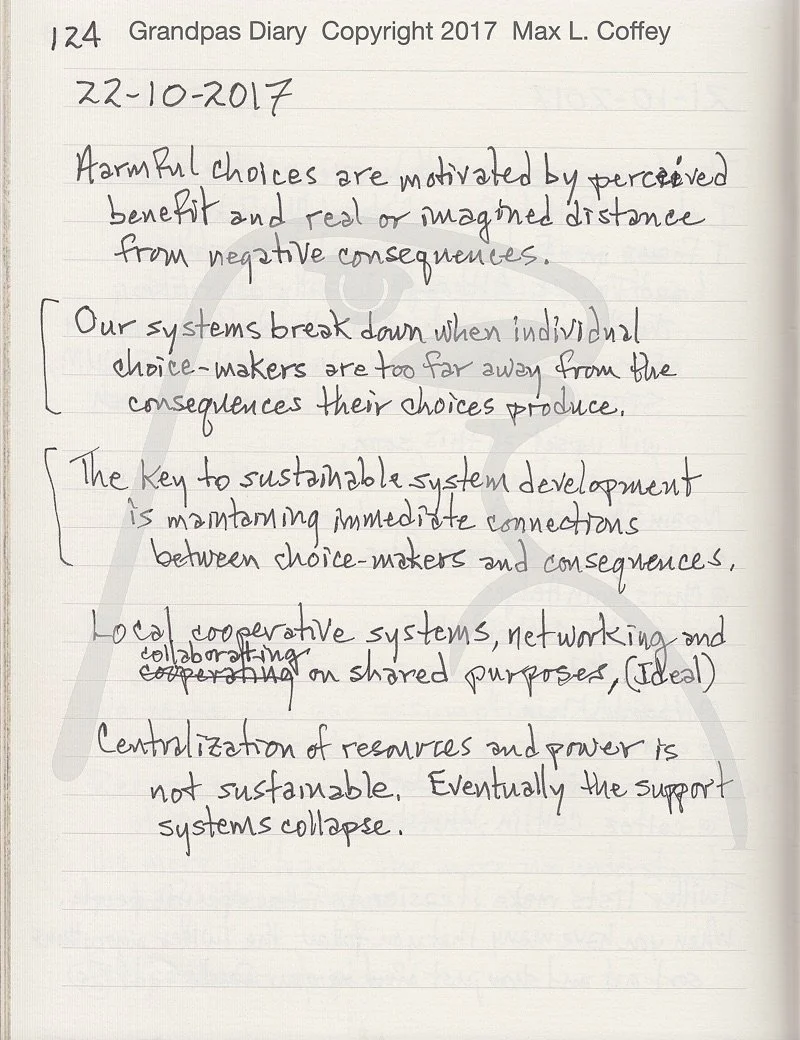 124 Grandpas Diary Copyright 2017 Max L. Coffey
22-10-2017
Harmful choices are motivated by perceived
benefit and real or imagined distance
from negative consequences.
Our systems break down when individual
choice-makers are too far away from the
consequences their choices produce.
The key to sustainable system development
is maintaining immediate connections
between choice-makers and consequences.
Local cooperative systems, networking and
collaborating
cooperating on shared purposes, (Ideal)
Centralization of resources and power is
not sustainable. Eventually the support
systems collapse.